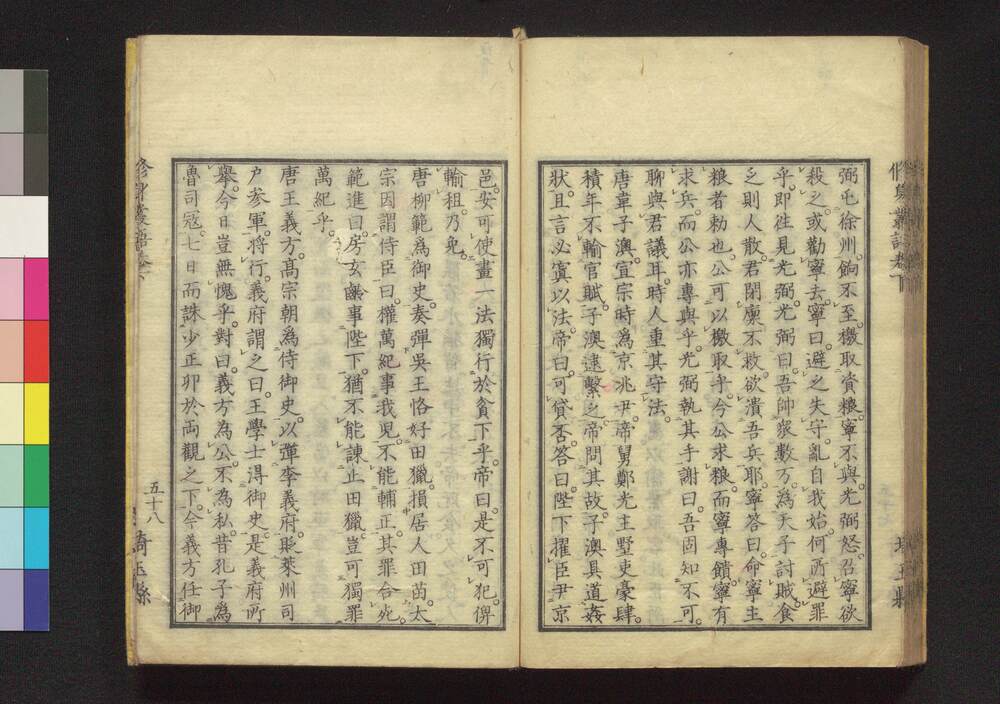 弼屯徐州餉不至檄取資粮寧不與光弼怒召寧欲
殺之或勸寧去寧曰避之失守亂自我始何所避罪
乎即往見光弼光弼曰吾帥衆數万為天子討賊食
乏則人散君閉廪不救欲潰吾兵耶寧答曰命寧主
粮者勅也公可以檄取乎今公求粮而寧專饋寧有
求兵而公亦專與乎光弼執其手謝曰吾固知不可
聊與君議耳時人重其守法
唐韋子澳宣宗時為京兆尹帝舅鄭光主墅吏豪肆
積年不輸官賦子澳逮繫之帝問其故子澳具道姦
狀且言必寘以法帝曰可貸否答曰陛下擢臣尹京
邑安可使畫一法獨行於貧下乎帝曰是不可犯俾
輸租乃免
唐柳範為御史奏彈吳王恪好田獵損居人田苗太
宗因謂侍臣曰權萬紀事我児不能輔正其罪合死
範進曰房玄齡事陛下猶不能諌止田獵豈可獨罪
萬紀乎
唐王義方高宗朝為侍御史以彈李義府貶萊州司
户参軍将行義府謂之曰王學士淂御史是義府所
舉今日豈無愧乎對曰義方為公不為私昔孔子為
魯司寇七日而誅少正卯於両觀之下今義方任御
五十八
埼玉縣